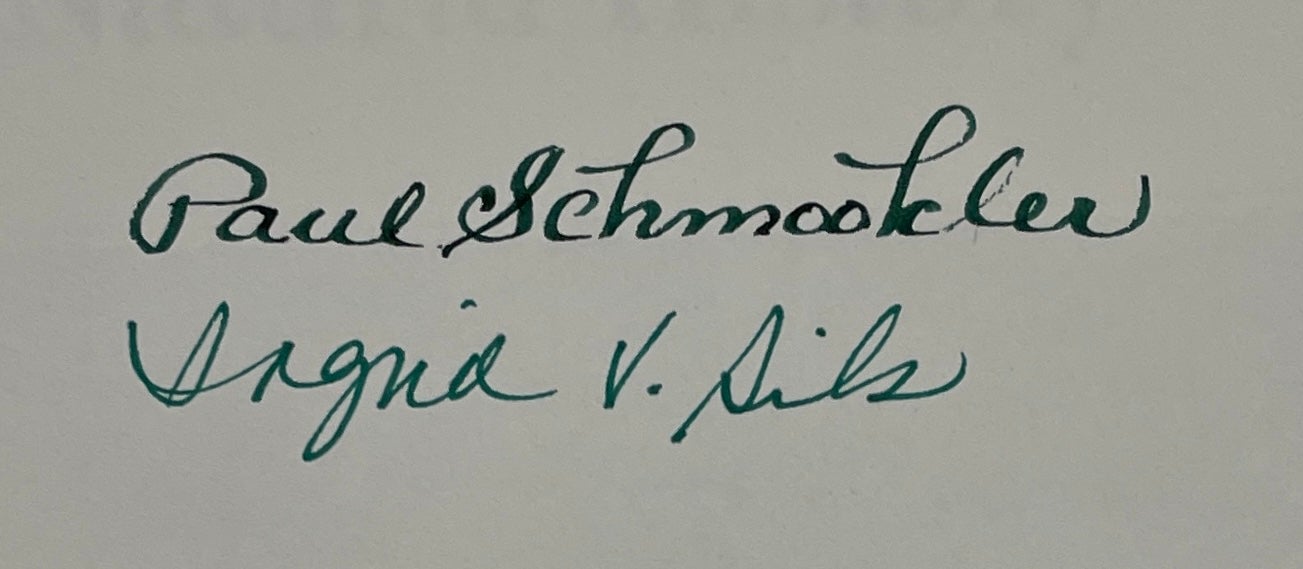 Paul Schmookler
Ingrid V. Sils